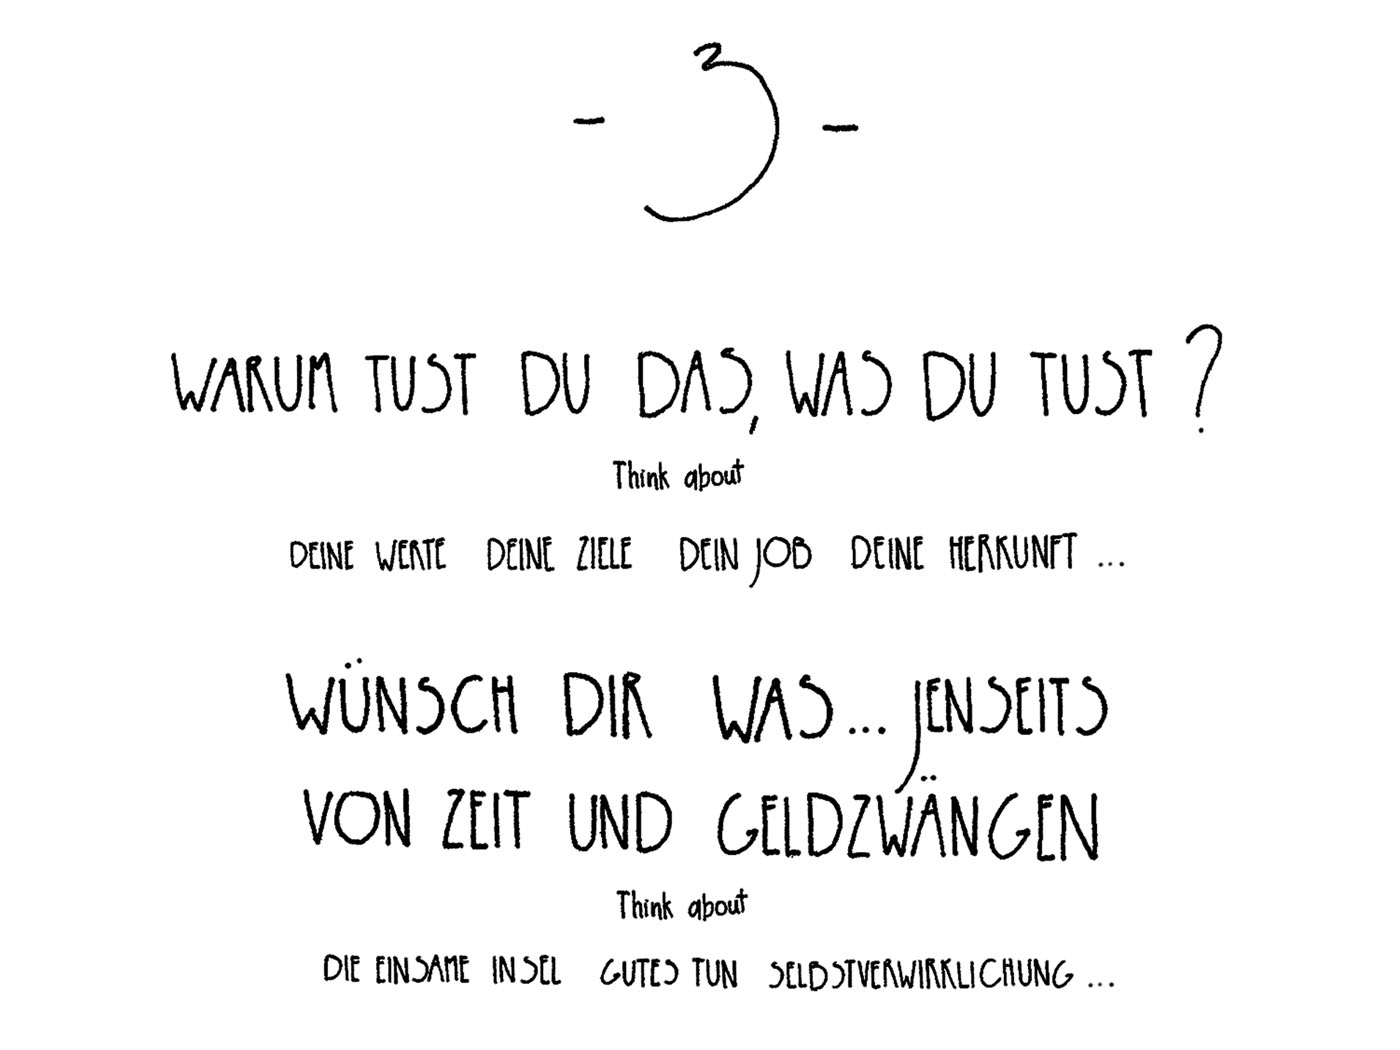 - 3 -
WARUM TUST DU DAS, WAS DU TUST ?
Think about
DEINE WERTE DEINE ZIELE DEIN JOB DEINE HERKUNFT ...
WÜNSCH DIR WAS... JENSEITS
VON ZEIT UND GELDZWÄNGEN
Think about
DIE EINSAME INSEL GUTES TUN SELBSTVERWIRKLICHUNG ...